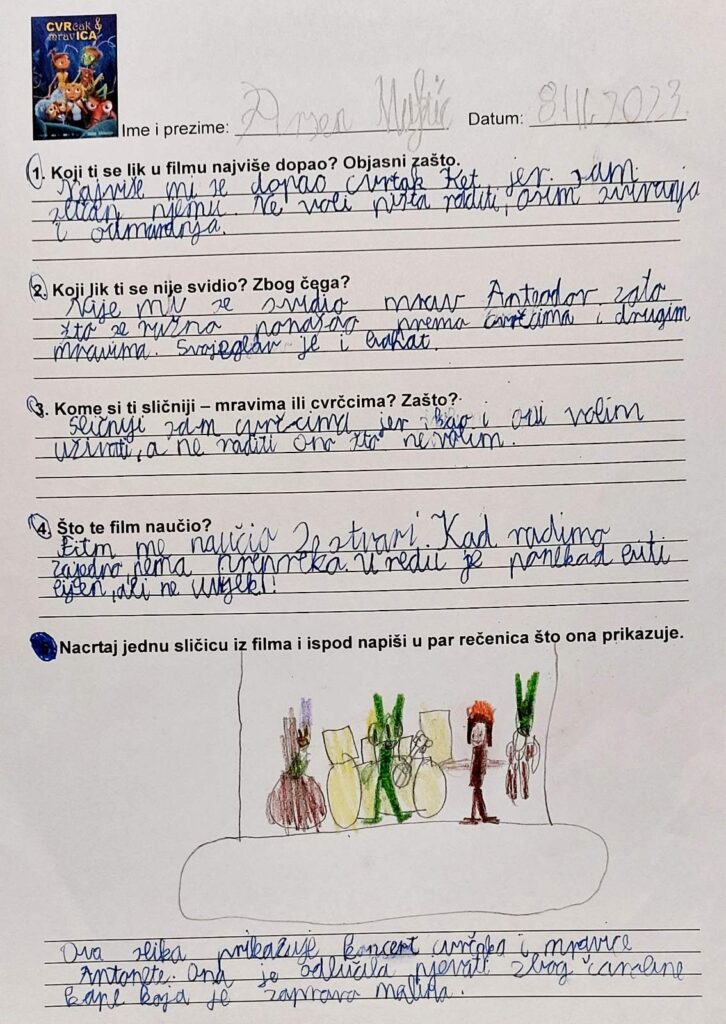 CVRčak &
mravICA
Ime i prezime: Arsen Datum: 2023.
1. Koji ti se lik u filmu najviše dopao? Objasni zašto.
Najviše mi se dopao cvrčak Ket jer sam
sličan njemu. Ne voli ništa raditi, osim sviranja
i odmaranja.
2. Koji lik ti se nije svidio? Zbog čega?
Nije mi se svidio mrav Anteodor zato
što se ružno ponašao prema cvrčcima i drugim
mravima. Svojeglav je i bahat.
3. Kome si ti sličniji – mravima ili cvrčcima? Zašto?
Sličniji sam cvrčcima jer kao i oni volim
uživati, a ne raditi ono što ne volim.
4. Što te film naučio?
Film me naučio 2 stvari. Kad radimo
zajedno nema prepreka. U redu je ponekad biti
lijen, ali ne uvijek!
Nacrtaj jednu sličicu iz filma i ispod napiši u par rečenica što ona prikazuje.
Ova slika prikazuje koncert cvrčaka i mravice
Antonete. Ona je odlučila pjevati zbog čarobne
kape koja je zapravo malina.